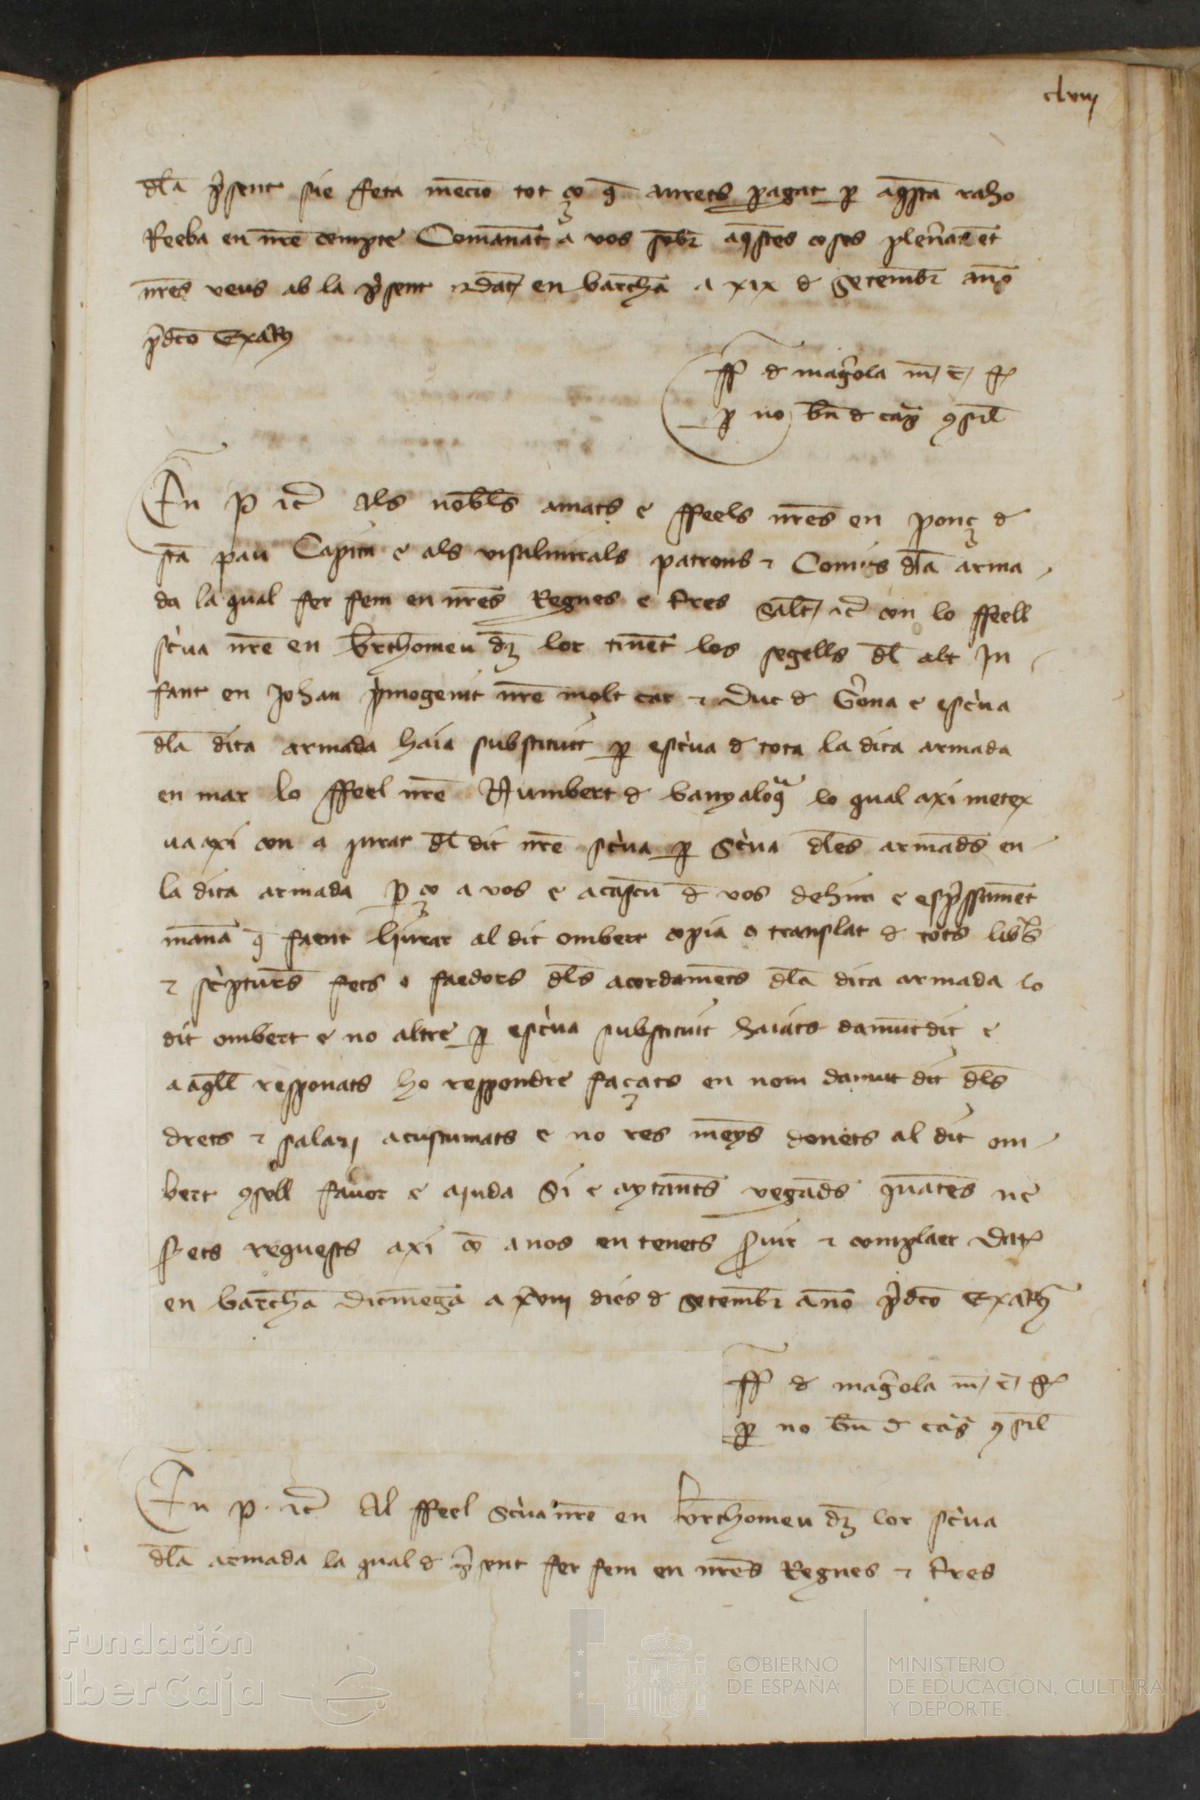 clviii
dla p̃sent sie feta mencio tot ço q̃ aurets pagat p aq̃sta raho
Reeba en nr̃e compte Comanant a vos sobr̃ aq̃stes coses plenãᵗ et
nr̃es veus ab la p̃sent dat̃ en barch̃a a xix d setembr̃ año
p̃dc̃o Exañs
ff d magr̃ola
p no bñ d
En P etc̃ Als nobles amats e ffeels nr̃es en ponç d
sc̃a pau Capita e als visalmirals patrons e Comits dla arma
da la qual fer fem en nr̃es Regnes e tr̃es salt̃ etc̃ con lo ffeel
scr̃iva nr̃e en brthomeu dz lor tinẽt los segells dl alt In
fant en Johan p̃mogenit nr̃e molt car e Duc d Gr̃ona e escr̃iva
dla dita armada haia substituit p escr̃iva d tota la dita armada
en mar lo ffeel nr̃e Humbert d banyaloq̃ lo qual axi metex
va axi con a jurat dl dit nr̃e scr̃iva p scr̃iva dles armad̃s en
la dita armada p ço a vos e a cascu d vos dehim e esp̃ssamẽt
manã q̃ faent lliurar al dit ombert copia o translat d tots libr̃s
e scr̃ipturẽs fets o faedors dls acordamẽts dla dita armada lo
dit ombert e no altre p escr̃iva substituit haiats damũt dit e
a aq̃ll responats ho respondre façats en nom damut dit dls
drets e salari acustumats e no res meys donets al dit om
bert 9sell favor e ajuda si e aytantẽs vegadẽs quantẽs ne
sr̃ets requests axi cõ a nos entenets s̃vir e complaer Dat̃
en barch̃a dicmẽga a xviii dies d setembr̃ año p̃dc̃o Exañs
ff d magr̃ola
p no bñ d
En p etc̃ Al ffeel scr̃iva nr̃e en brthomeu dz lor scr̃iva
dla armada la qual d p̃sent fer fem en nr̃es Regnes e tr̃es
Fundación
iberCaja
GOBIERNO
DE ESPAÑA
MINISTERIO
DE EDUCACIÓN, CULTURA
Y DEPORTE